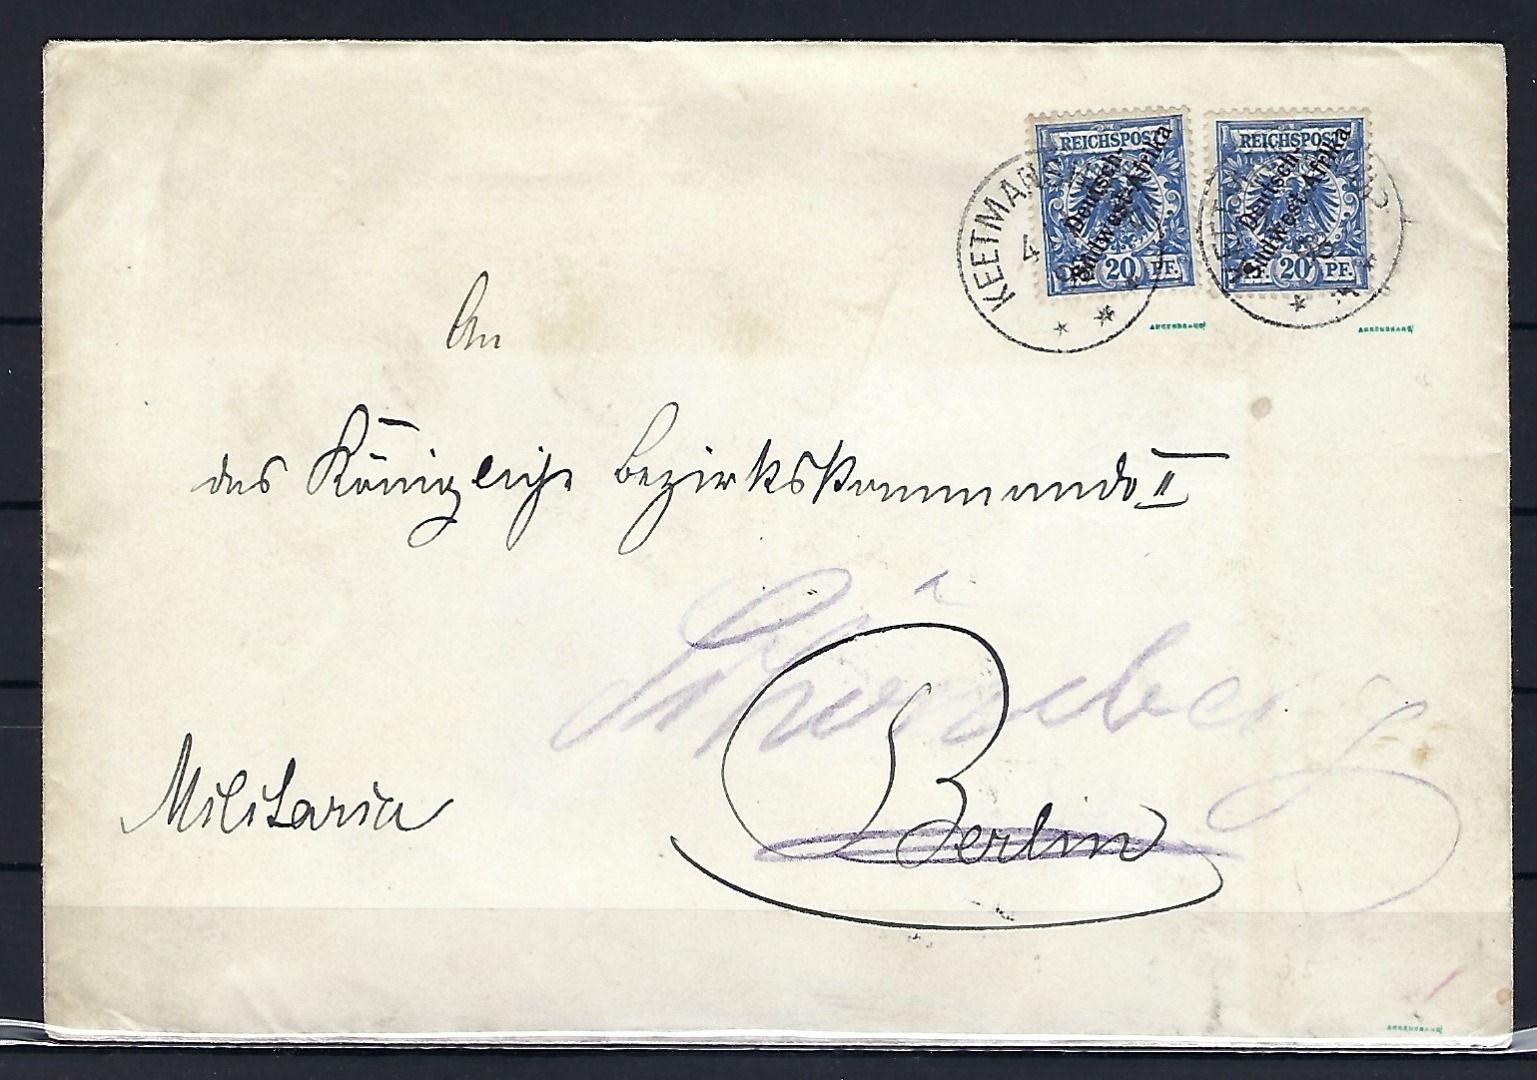 REICHSPOST
Deutsch-
Südwest-Afrika
20 PF.
REICHSPOST
Deutsch-
Südwest-Afrika
20 PF.
An
das Königliche Bezirkskommando II
Schöneberg
Berlin
Militaria